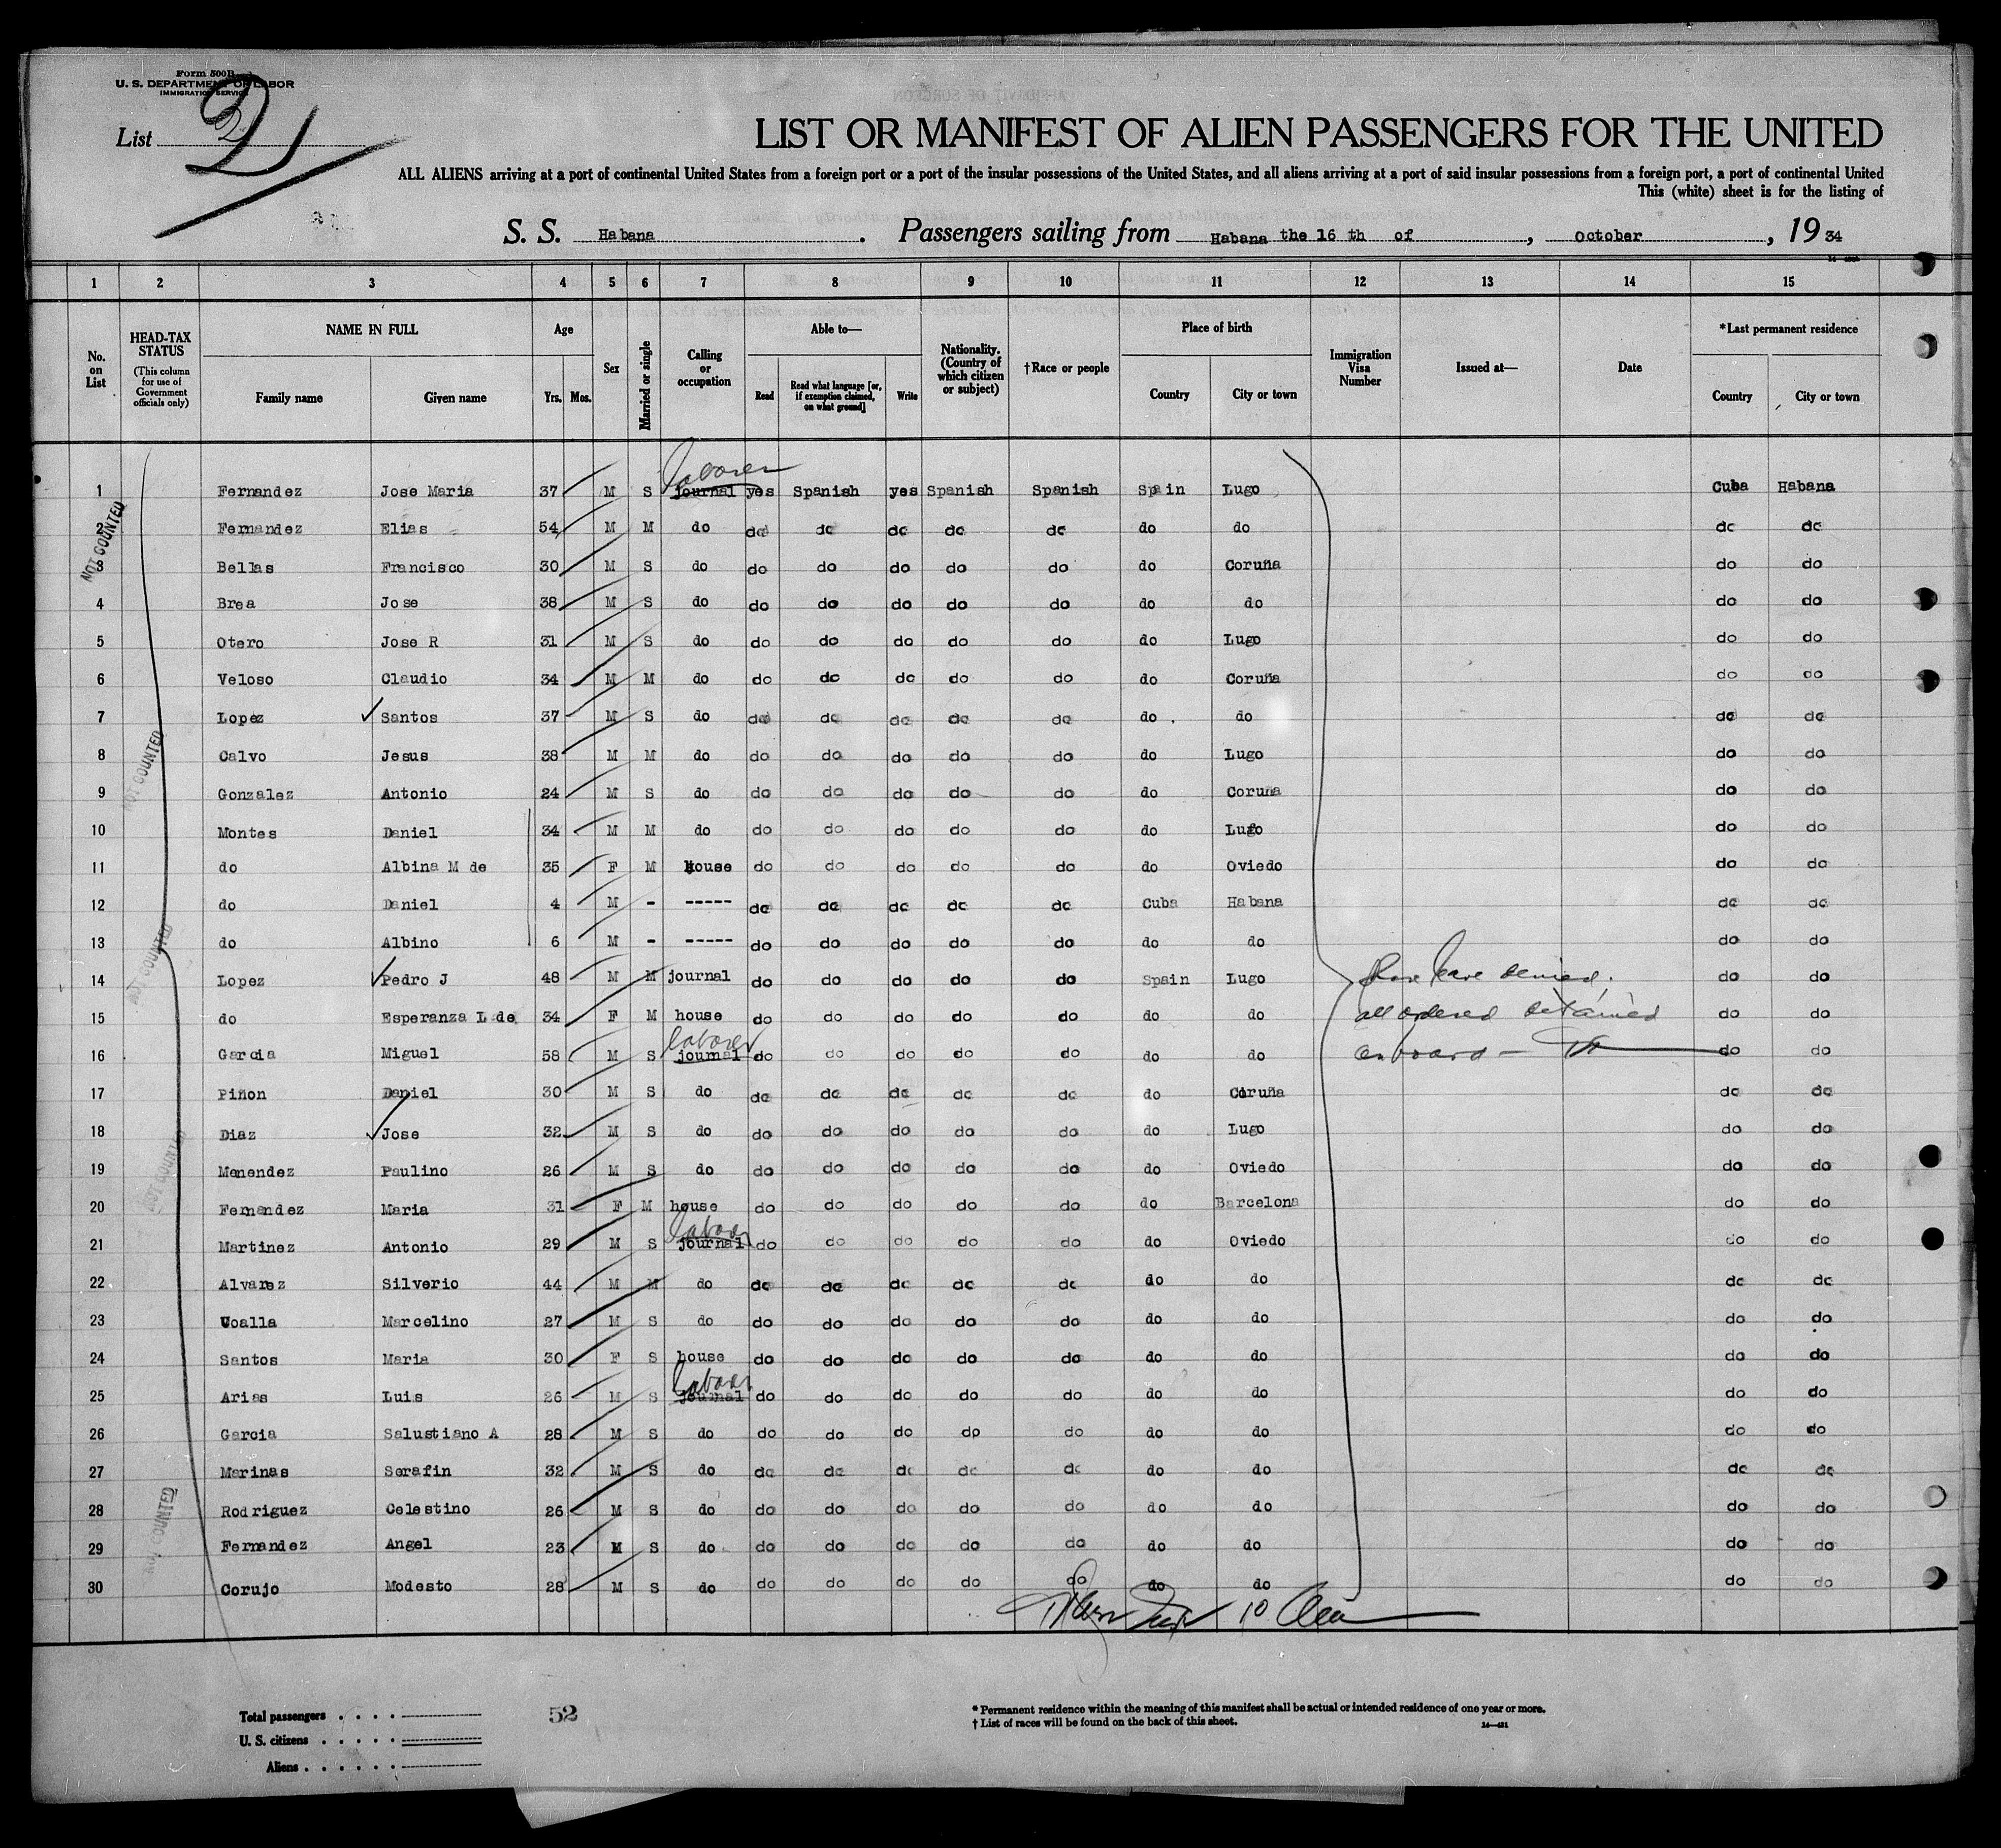 Form 500B
U. S. DEPARTMENT OF LABOR
IMMIGRATION SERVICE
List 2
LIST OR MANIFEST OF ALIEN PASSENGERS FOR THE UNITED
ALL ALIENS arriving at a port of continental United States from a foreign port or a port of the insular possessions of the United States, and all aliens arriving at a port of said insular possessions from a foreign port, a port of continental United
This (white) sheet is for the listing of
S. S. Habana. Passengers sailing from Habana the 16 th of, October, 19 34
1 2 3 4 5 6 7 8 9 10 11 12 13 14 15
No. on List
HEAD-TAX STATUS (This column for use of Government officials only)
NAME IN FULL Family name Given name
Age Yrs. Mos.
Sex
Married or single
Calling or occupation
Able to— Read Read what language [or, if exemption claimed, on what ground] Write
Nationality. (Country of which citizen or subject)
†Race or people
Place of birth Country City or town
Immigration Visa Number
Issued at—
Date
*Last permanent residence Country City or town
laborer
1 Fernandez Jose Maria 37 M S journal yes Spanish yes Spanish Spanish Spain Lugo Cuba Habana
2 Fernandez Elias 54 M M do do do do do do do do do do
3 Bellas Francisco 30 M S do do do do do do do Coruña do do
4 Brea Jose 38 M S do do do do do do do do do do
5 Otero Jose R 31 M S do do do do do do do Lugo do do
6 Veloso Claudio 34 M M do do do do do do do Coruña do do
7 Lopez Santos 37 M S do do do do do do do do do do
8 Calvo Jesus 38 M M do do do do do do do Lugo do do
9 Gonzalez Antonio 24 M S do do do do do do do Coruna do do
10 Montes Daniel 34 M M do do do do do do do Lugo do do
11 do Albina M de 35 F M house do do do do do do Oviedo do do
12 do Daniel 4 M - ----- do do do do do Cuba Habana do do
13 do Albino 6 M - ----- do do do do do do do do do
14 Lopez Pedro J 48 M M journal do do do do do Spain Lugo Shore leave denied. do do
15 do Esperanza L de 34 F M house do do do do do do do all ordered detained do do
laborer
16 Garcia Miguel 58 M S journal do do do do do do do onboard — do do
17 Piñon Daniel 30 M S do do do do do do do Coruña do do
18 Diaz Jose 32 M S do do do do do do do Lugo do do
19 Menendez Paulino 26 M S do do do do do do do Oviedo do do
20 Fernandez Maria 31 F M house do do do do do do Barcelona do do
laborer
21 Martinez Antonio 29 M S journal do do do do do do Oviedo do do
22 Alvarez Silverio 44 M M do do do do do do do do do do
23 Coalla Marcelino 27 M S do do do do do do do do do do
24 Santos Maria 30 F S house do do do do do do do do do
laborer
25 Arias Luis 26 M S journal do do do do do do do do do
26 Garcia Salustiano A 28 M S do do do do do do do do do do
27 Marinas Serafin 32 M S do do do do do do do do do do
28 Rodriguez Celestino 26 M S do do do do do do do do do do
29 Fernandez Angel 23 M S do do do do do do do do do do
30 Corujo Modesto 28 M S do do do do do do do do do do
NOT COUNTED
NOT COUNTED
NOT COUNTED
NOT COUNTED
NOT COUNTED
Total passengers
U. S. citizens
Aliens
52
* Permanent residence within the meaning of this manifest shall be actual or intended residence of one year or more.
† List of races will be found on the back of this sheet.